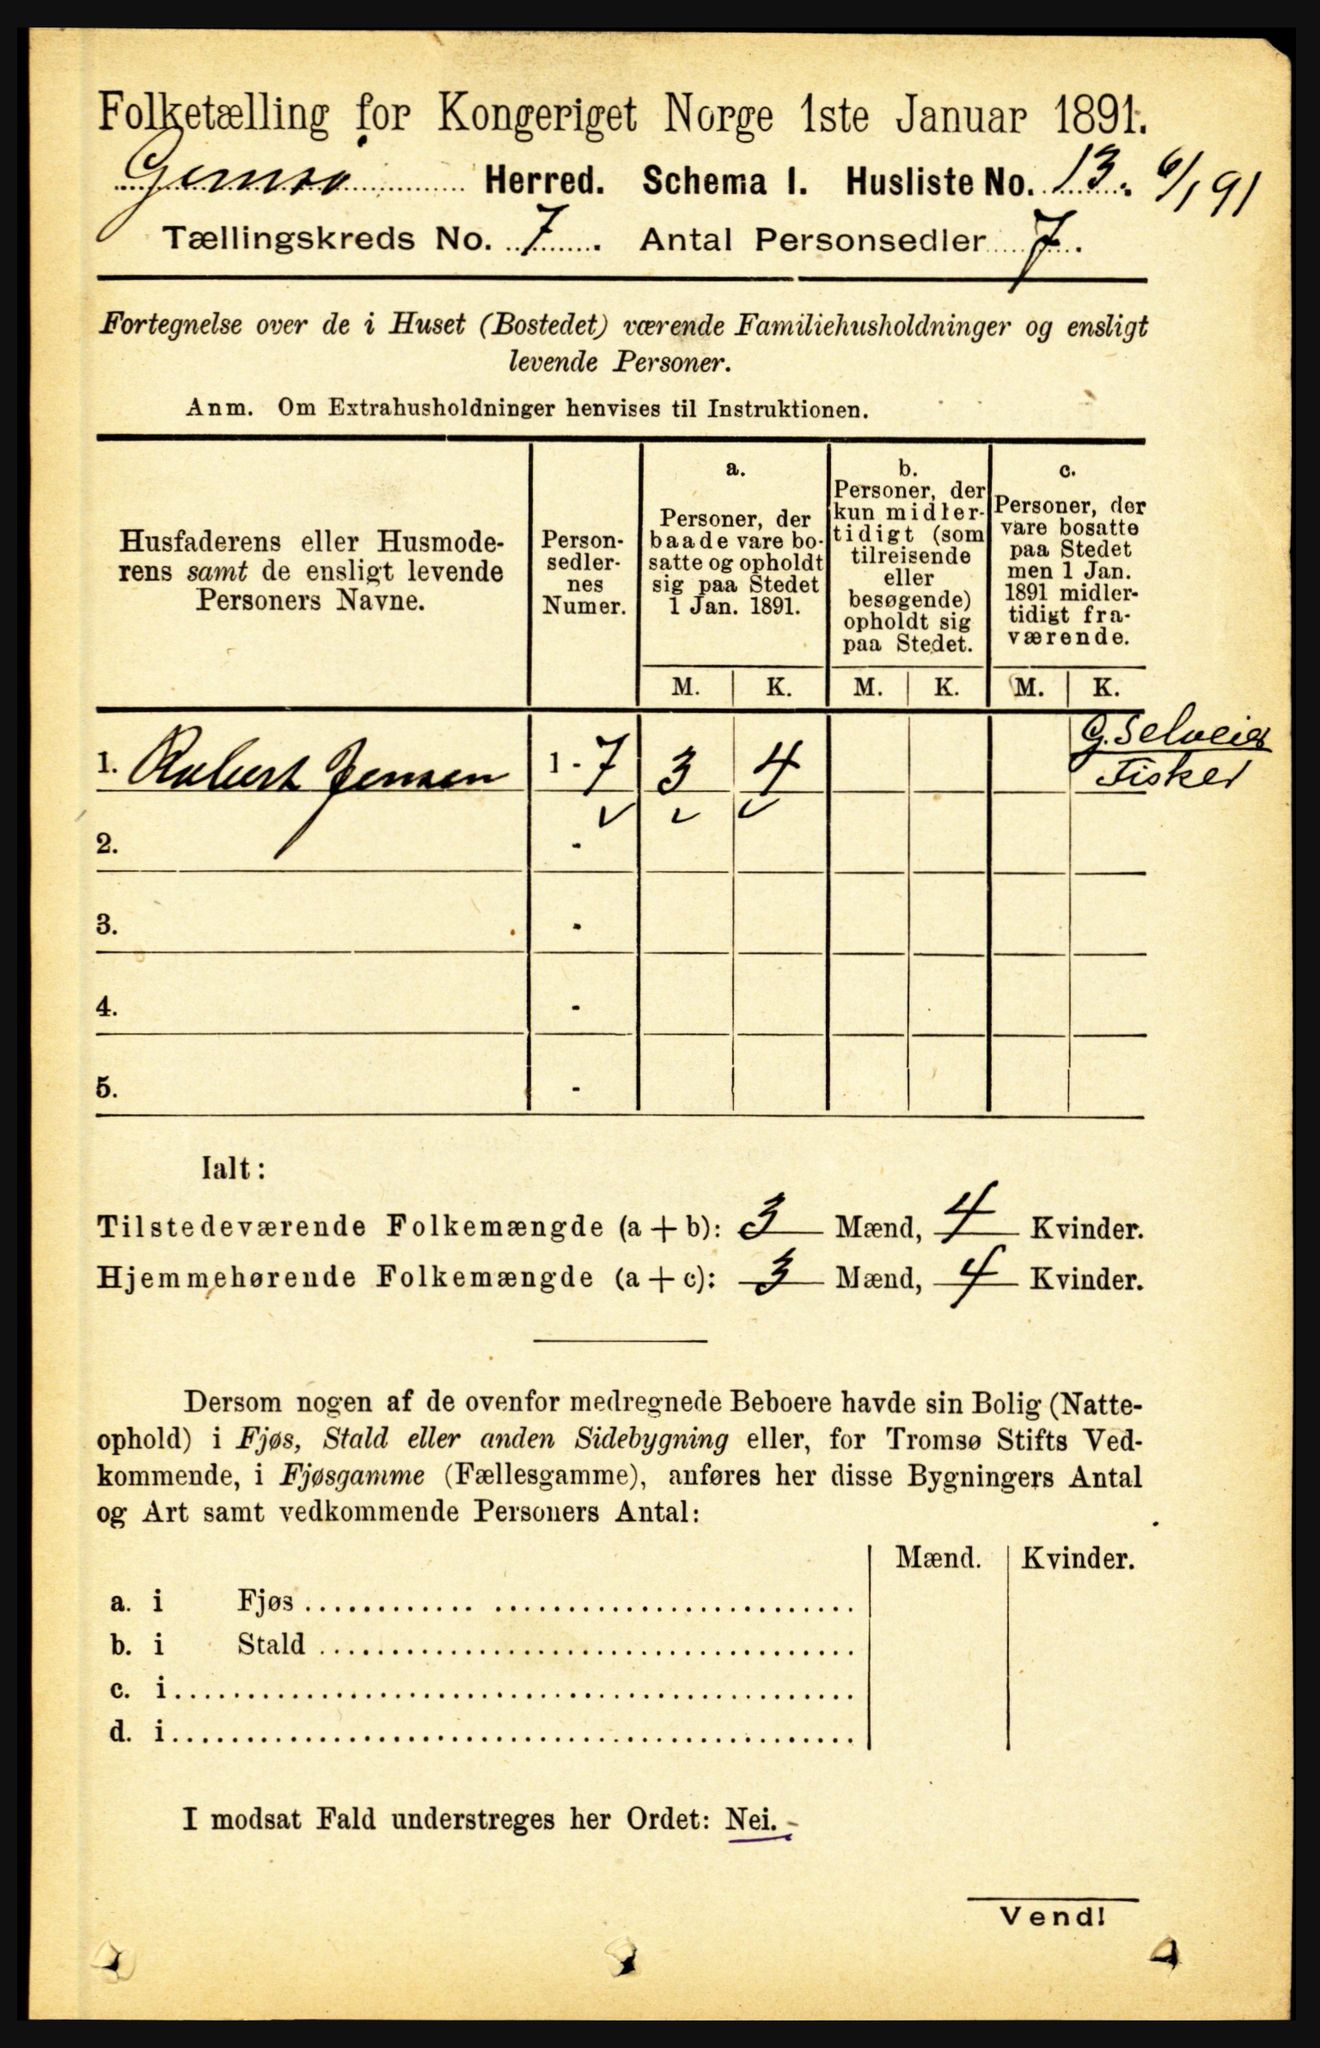 Folketælling for Kongeriget Norge 1ste Januar 1891.
Gemsø Herred. Schema I. Husliste No. 13. 6/1 91
Tællingskreds No. 7. Antal Personsedler 7.
Fortegnelse over de i Huset (Bostedet) værende Familiehusholdninger og ensligt
levende Personer.
Anm. Om Extrahusholdninger henvises til Instruktionen.
Husfaderens eller Husmode-
rens samt de ensligt levende
Personers Navne.
Person-
sedler-
nes
Numer.
a.
Personer, der
baade vare bo-
satte og opholdt
sig paa Stedet
1 Jan. 1891.
b.
Personer, der
kun midler-
tidigt (som
tilreisende
eller
besøgende)
opholdt sig
paa Stedet.
c.
Personer, der
vare bosatte
paa Stedet
men 1 Jan.
1891 midler-
tidigt fra-
værende.
M. K. M. K. M. K.
1. Robert Jensen 1 - 7 3 4 G. Selveier
Fisker
2. -
3. -
4. -
5. -
Ialt:
Tilstedeværende Folkemængde (a + b): 3 Mænd, 4 Kvinder.
Hjemmehørende Folkemængde (a + c): 3 Mænd, 4 Kvinder.
Dersom nogen af de ovenfor medregnede Beboere havde sin Bolig (Natte-
ophold) i Fjøs, Stald eller anden Sidebygning eller, for Tromsø Stifts Ved-
kommende, i Fjøsgamme (Fællesgamme), anføres her disse Bygningers Antal
og Art samt vedkommende Personers Antal:
Mænd. Kvinder.
a. i Fjøs
b. i Stald
c. i
d. i
I modsat Fald understreges her Ordet: Nei.
Vend!